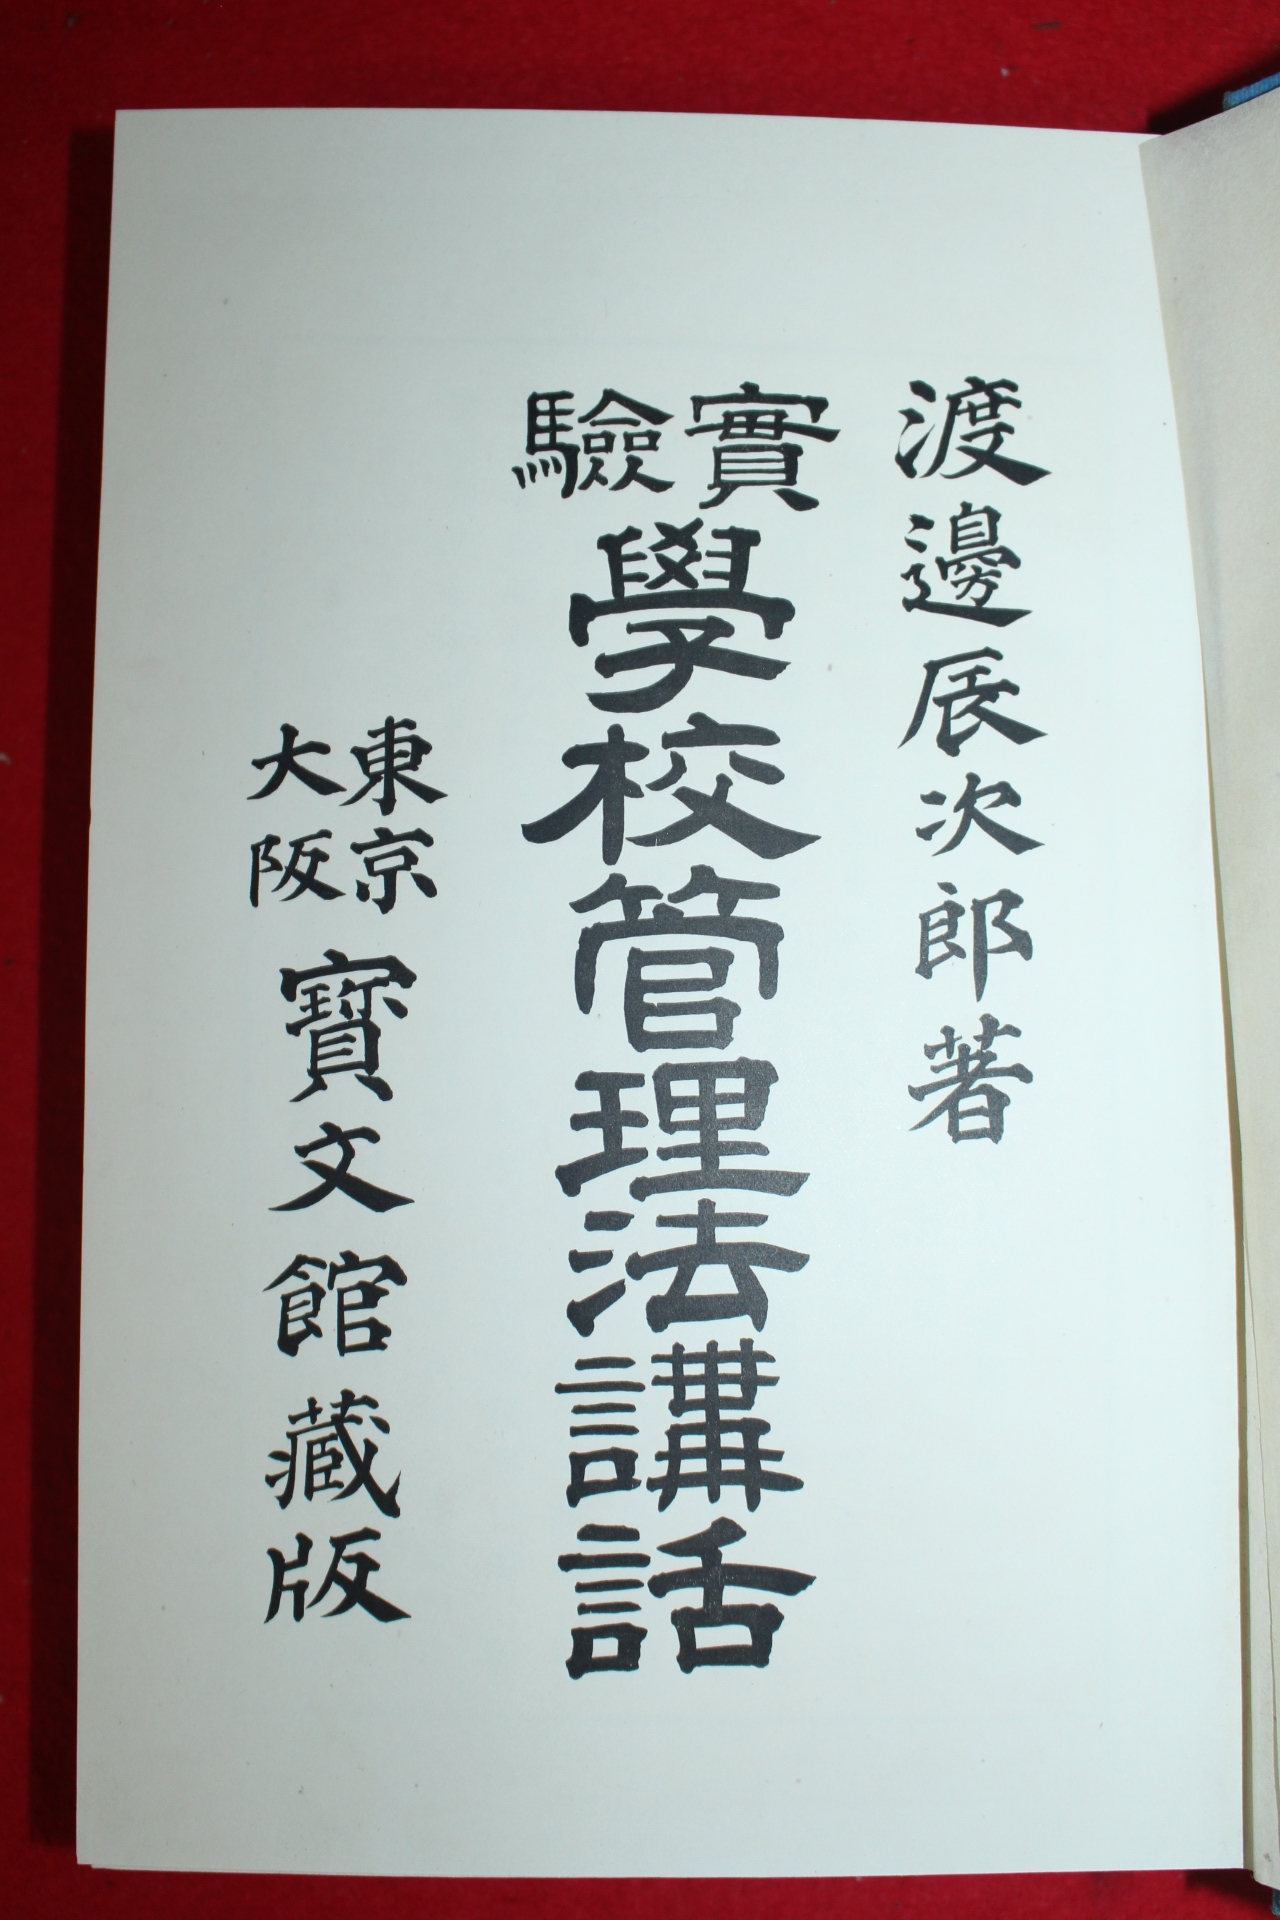 渡邊辰次郎著
實驗學校管理法講話
東京
大阪
寳文館藏版